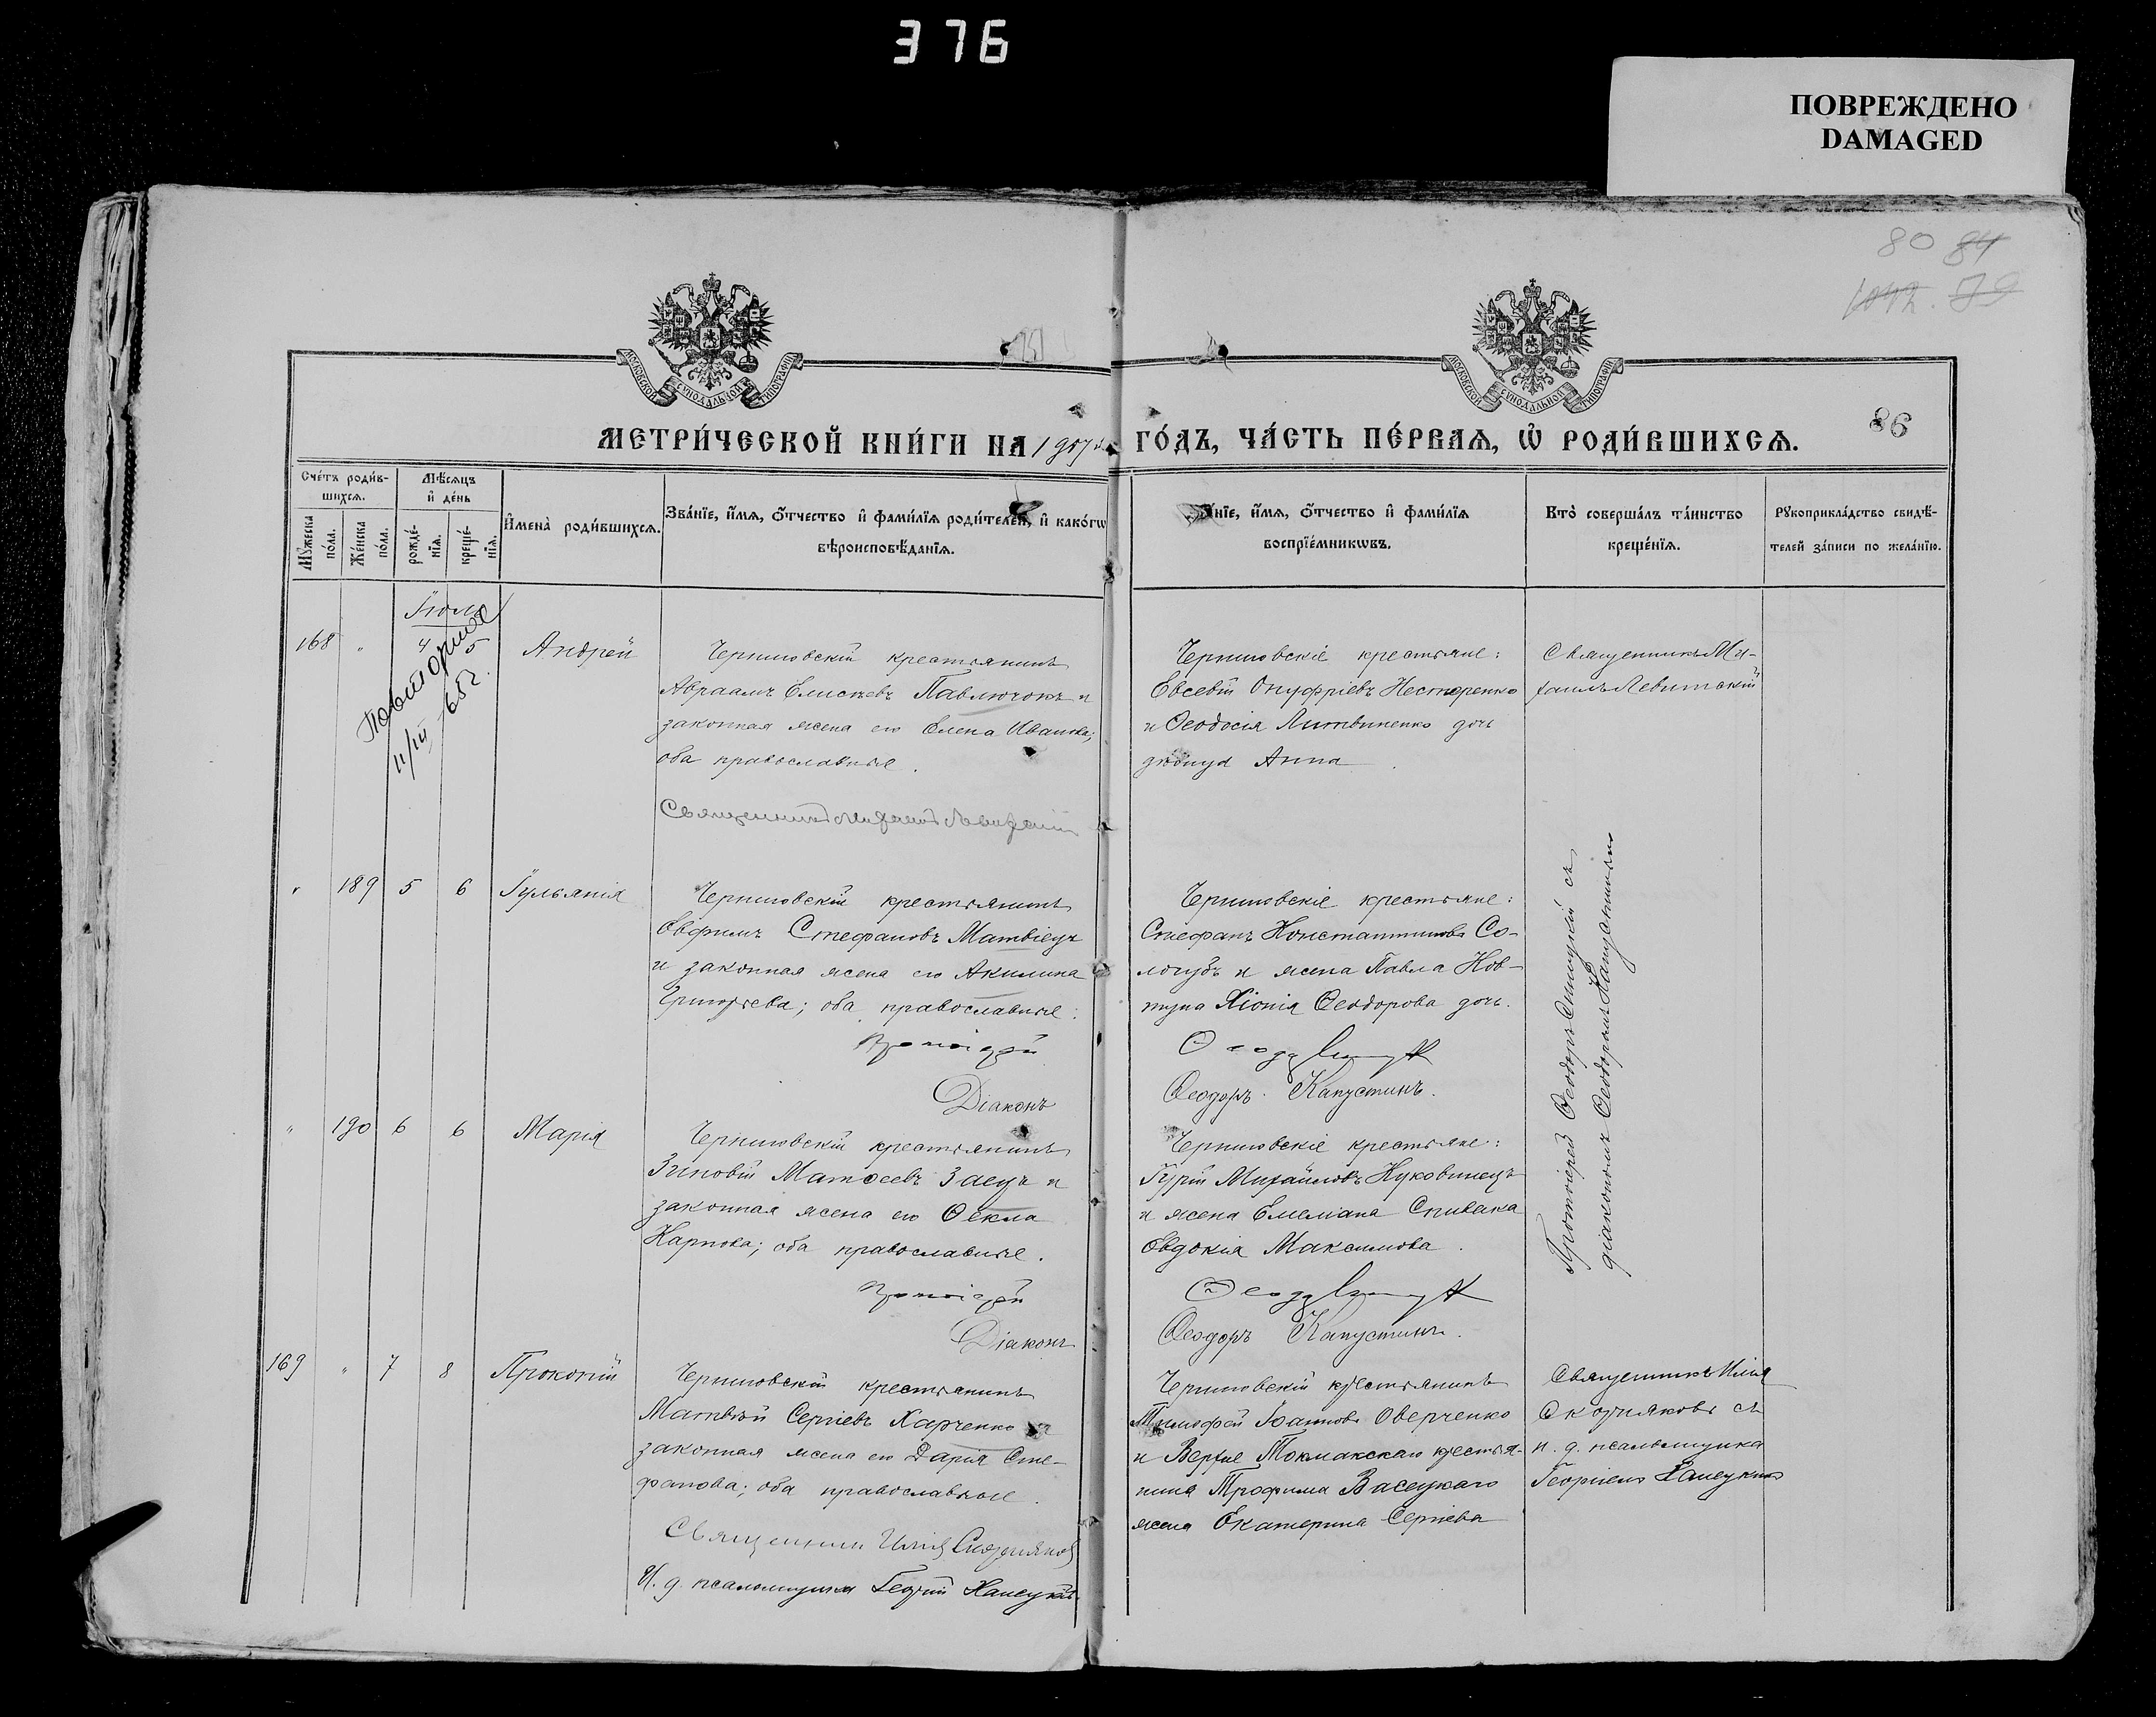 376
ПОВРЕЖДЕНО
DAMAGED
80 84
1042. 79
86
МОСКОВСКОЙ СѴНОДАЛЬНОЙ ТИПОГРАФІИ
МОСКОВСКОЙ СѴНОДАЛЬНОЙ ТИПОГРАФІИ
МЕТРИ́ЧЕСКОЙ КНИ́ГИ НА 1907й ГО́ДЪ, ЧА́СТЬ ПЕ́РВАѦ, Ѽ РОДИ́ВШИХСѦ.
Сче́тъ роди́в-
шихсѧ.
Мѹжеска по́ла.
Же́нска по́ла.
Мѣ́сѧцъ
и҆ де́нь
рожде́-
нїѧ.
креще́-
нїѧ.
И҆мена̀ роди́вшихсѧ.
Зва́нїе, и҆́мѧ, ѻ҆́тчество и҆ фами́лїѧ роди́телей, и҆ како́гѡ
вѣроисповѣ́данїѧ.
нїе, и҆́мѧ, ѻ҆́тчество и҆ фами́лїѧ
воспрїе́мникѡвъ.
Кто̀ соверша́лъ та́инство
креще́нїѧ.
Рꙋкоприкла́дство свидѣ́-
телей за́писи по жела́нїю.
Іюль
Повторное
11/III-65г.
168 " 4 5 Андрей
Черниговскій крестьянинъ
Авраамъ Елисѣевъ Павлючокъ и
законная жена его Елена Иванова;
оба православные.
Священникъ Михаилъ Левитскій
Черниговскіе крестьяне:
Евсевій Онуфріевъ Нестеренко
и Ѳеодосія Литвиненко дочь
Анна
Священникъ Ми-
хаилъ Левитскій
" 189 5 6 Іульянія
Черниговскій крестьянинъ
Евфимъ Стефановъ Матвіецъ
и законная жена его Акилина
Григорьева; оба православные.
Протоіерей
Діаконъ
Черниговскіе крестьяне:
Стефанъ Константиновъ Со-
логубъ и жена Павла Ков-
туна Хіонія Ѳеодорова дочь.
Ѳеодоръ
Ѳеодоръ Капустинъ.
Протоіерей Ѳеодоръ съ
діакономъ Ѳеодоромъ Капустинымъ
" 190 6 6 Марія
Черниговскій крестьянинъ
Зиновій Матѳеевъ Заецъ и
законная жена его Ѳекла
Карпова; оба православные.
Протоіерей
Діаконъ
Черниговскіе крестьяне:
Гурій Михайловъ Куковинецъ
и жена Емеліана Спивака
Евдокія Максимова.
Ѳеодоръ
Ѳеодоръ Капустинъ.
169 " 7 8 Прокопій
Черниговскій крестьянинъ
Матвѣй Сергіевъ Харченко и
законная жена его Дарія Сте-
фанова; оба православные.
Священникъ Илія
И. д. псаломщика Георгій Ханецкій
Черниговскій крестьянинъ
Тимофей Іоанновъ Оверченко
и Верхне Токмакскаго крестья-
нина Трофима Васецкаго
жена Екатерина Сергіева
Священникъ Илія
съ
и. д. псаломщика
Георгіемъ Ханецкимъ